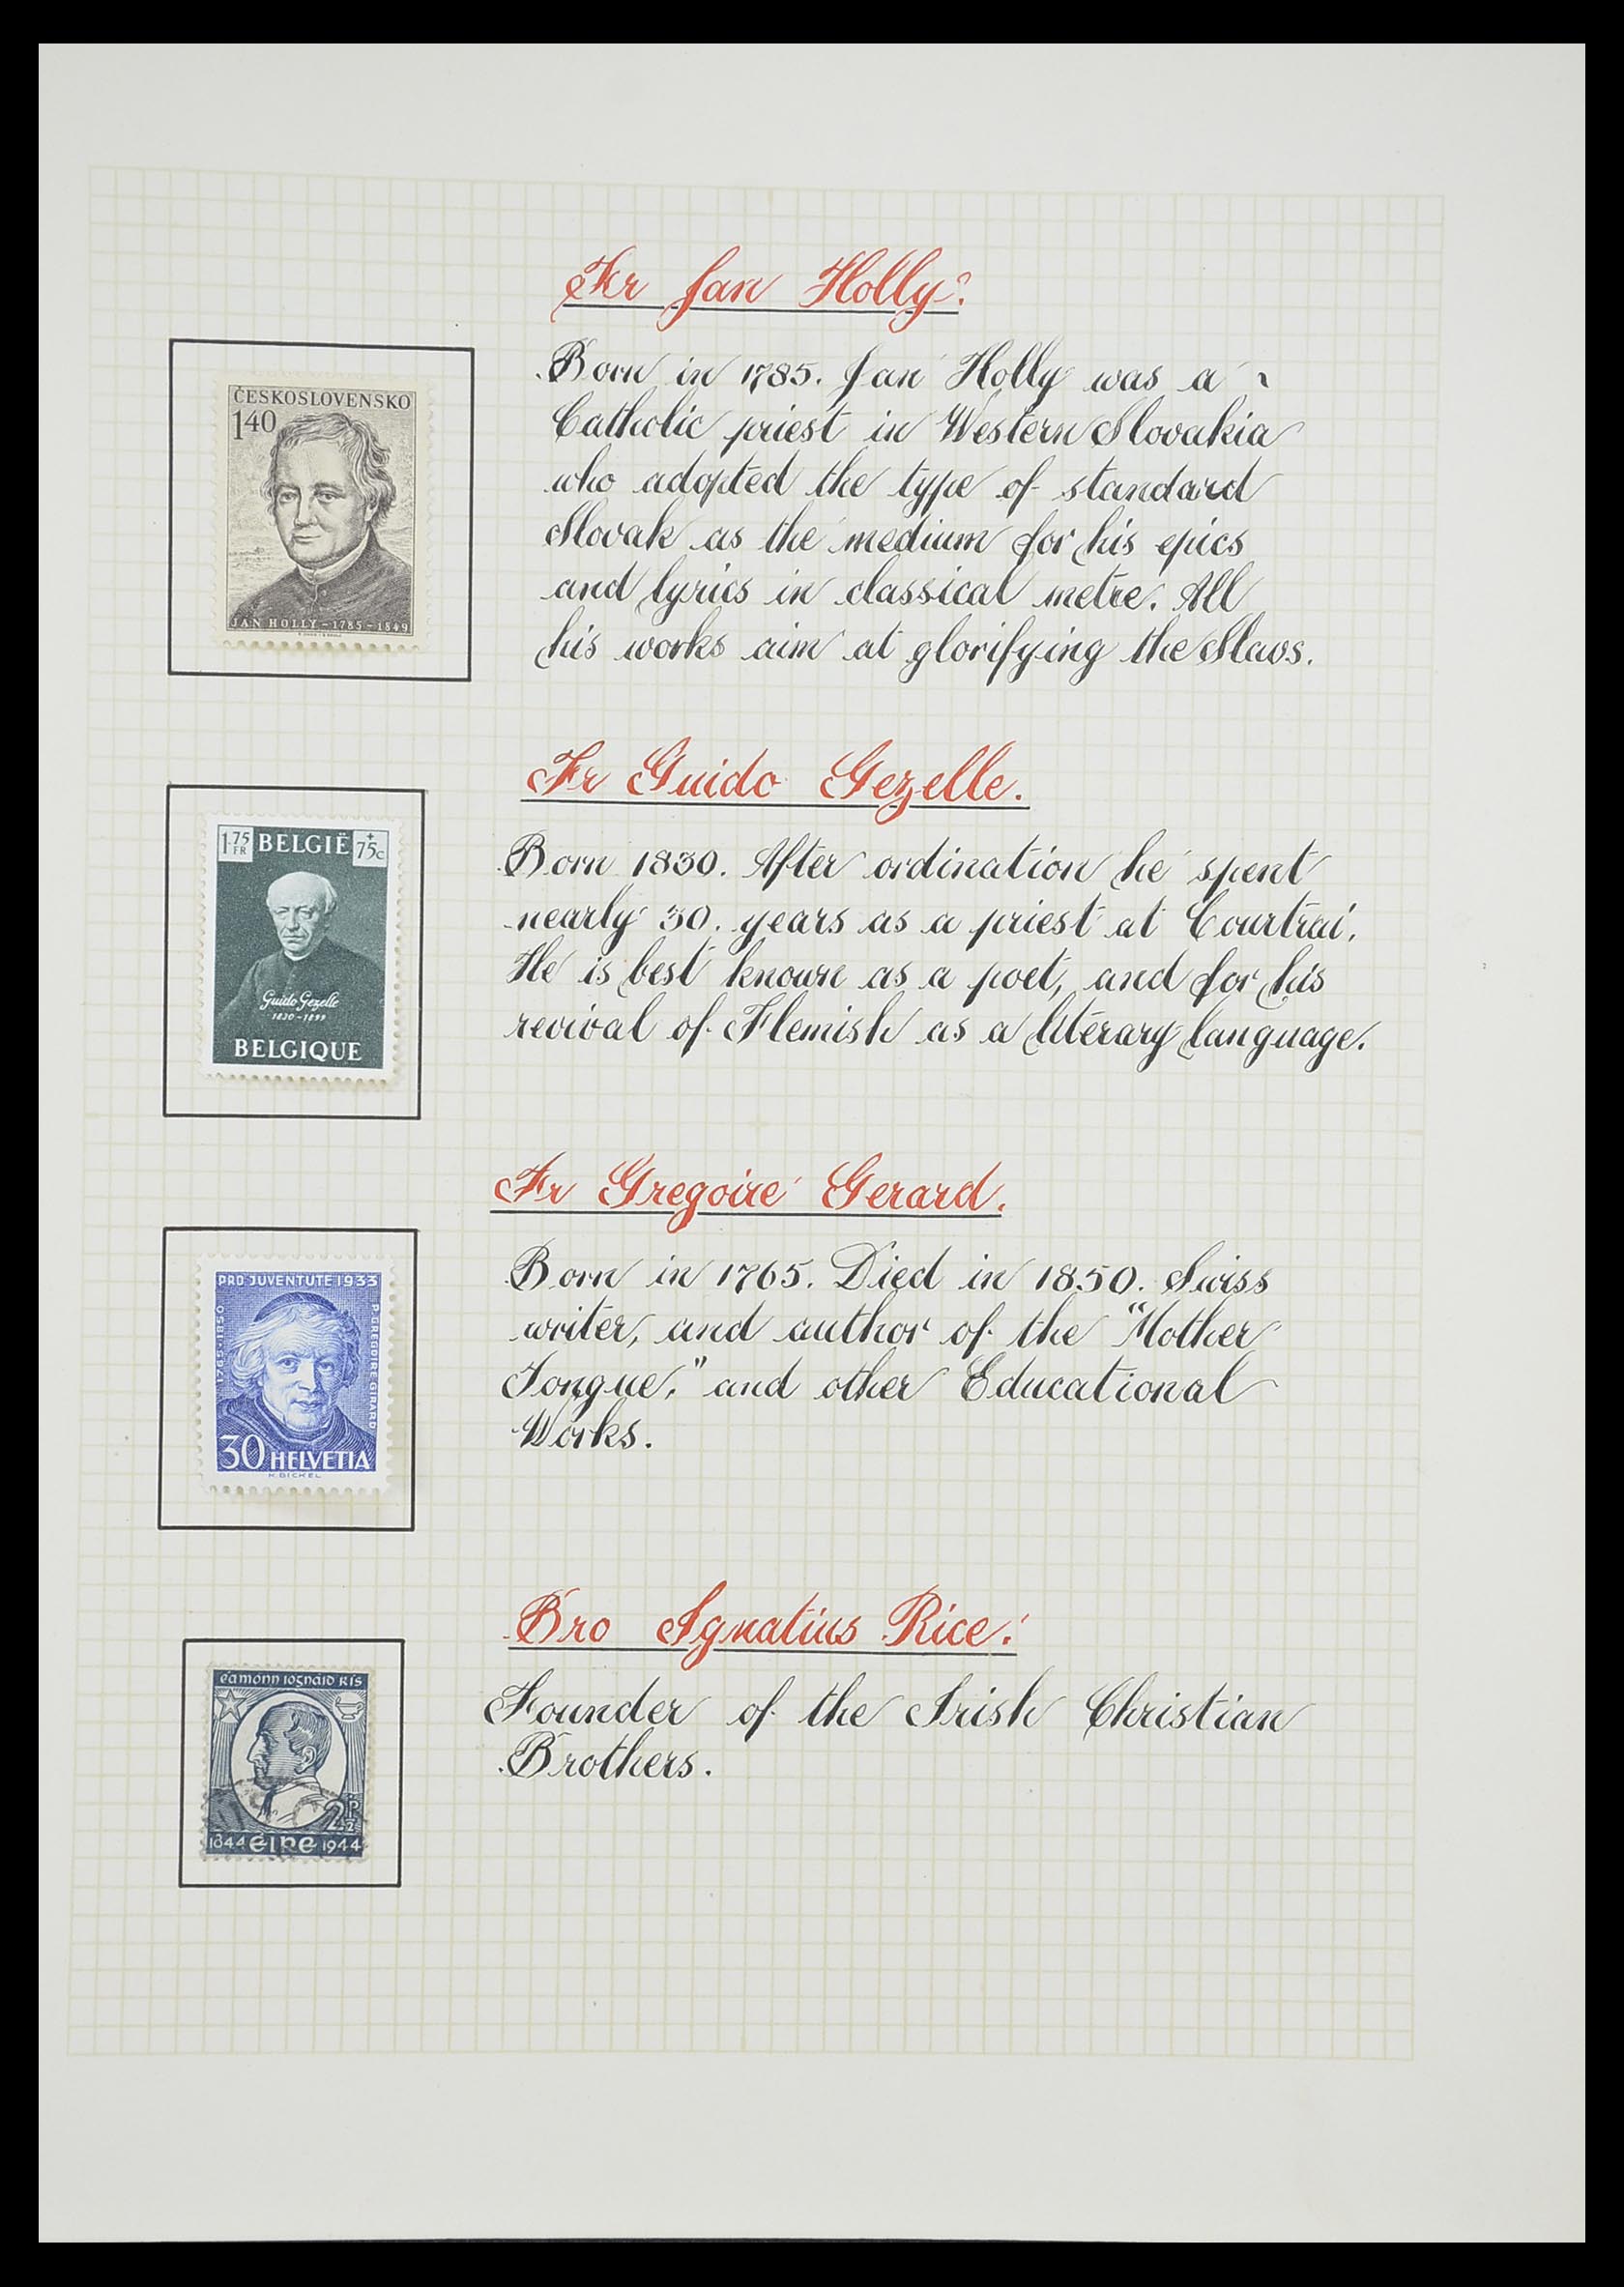 Fr Jan Holly.
ČESKOSLOVENSKO
1.40
JAN HOLLÝ - 1785 - 1849
Born in 1785. Jan Holly was a
Catholic priest in Western Slovakia
who adopted the type of standard
Slovak as the medium for his epics
and lyrics in classical metre. All
his works aim at glorifying the Slavs.
Fr Guido Gezelle.
1.75 FR BELGIË + 75c
Guido Gezelle
1830-1899
BELGIQUE
Born 1830. After ordination he spent
nearly 30. years as a priest at Courtrai.
He is best known as a poet, and for his
revival of Flemish as a literary language.
Fr Gregoire Gerard.
PRO JUVENTUTE 1933
1765-1850
P. GREGOIRE GIRARD
30 HELVETIA
K. BICKEL
Born in 1765. Died in 1850. Swiss
writer, and author of the "Mother
Tongue," and other Educational
Works.
Bro Ignatius Rice.
éamonn iognáid rís
2½P
1844 éire 1944
Founder of the Irish Christian
Brothers.